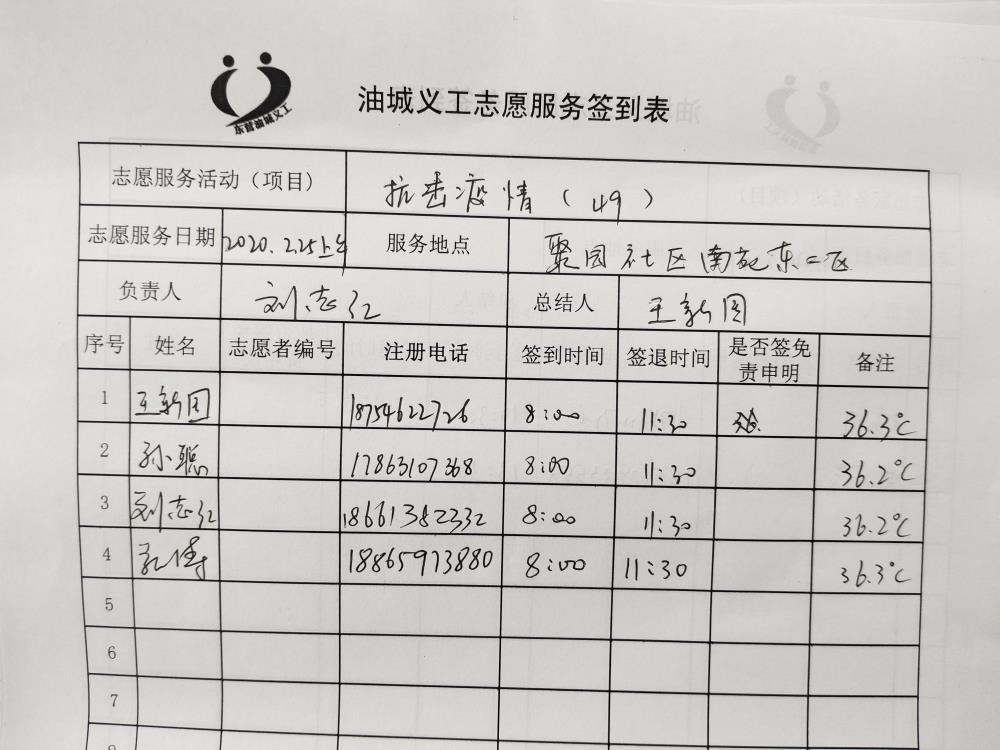 东营油城义工
油城义工志愿服务签到表
志愿服务活动（项目） 抗击疫情（49）
志愿服务日期 2020.2.25上午 服务地点 聚园社区南苑东二区
负责人 刘志红 总结人 王新国
序号 姓名 志愿者编号 注册电话 签到时间 签退时间 是否签免责申明 备注
1 王新国 18754622726 8:00 11:30 36.3℃
2 孙聪 17863107368 8:00 11:30 36.2℃
3 刘志红 18661382332 8:00 11:30 36.2℃
4 孔倩 18865973880 8:00 11:30 36.3℃
5
6
7